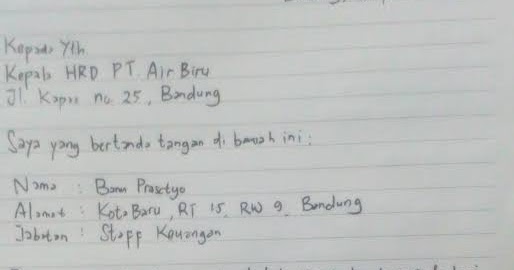 Kepada Yth.
Kepala HRD PT. Air Biru
Jl. Kapas no. 25, Bandung
Saya yang bertanda tangan di bawah ini :
Nama : Prasetyo
Alamat : Kota Baru, RT 15, RW 9, Bandung
Jabatan : Staff Keuangan